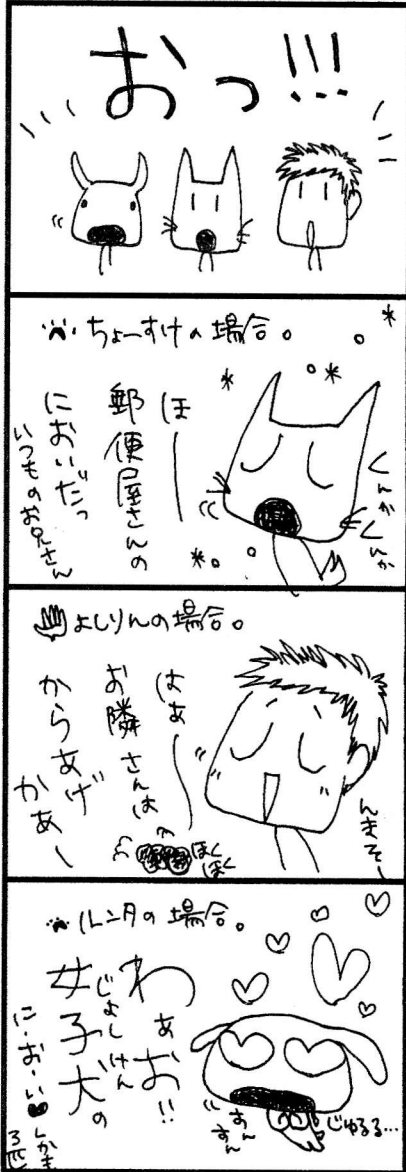 おっ!!!
ちょーすけの場合。
ほーー
郵便屋さんの
においだっ
いつものお兄さん
くんか
くんか
よしりんの場合。
はあー
お隣さんは
からあげ
かあー
ほく
ほく
んまそー
ルンタの場合。
わぁお!!
女子犬の
じょしけん
に・お・い♥
しかも
3匹
すん
すん
じゅるる…